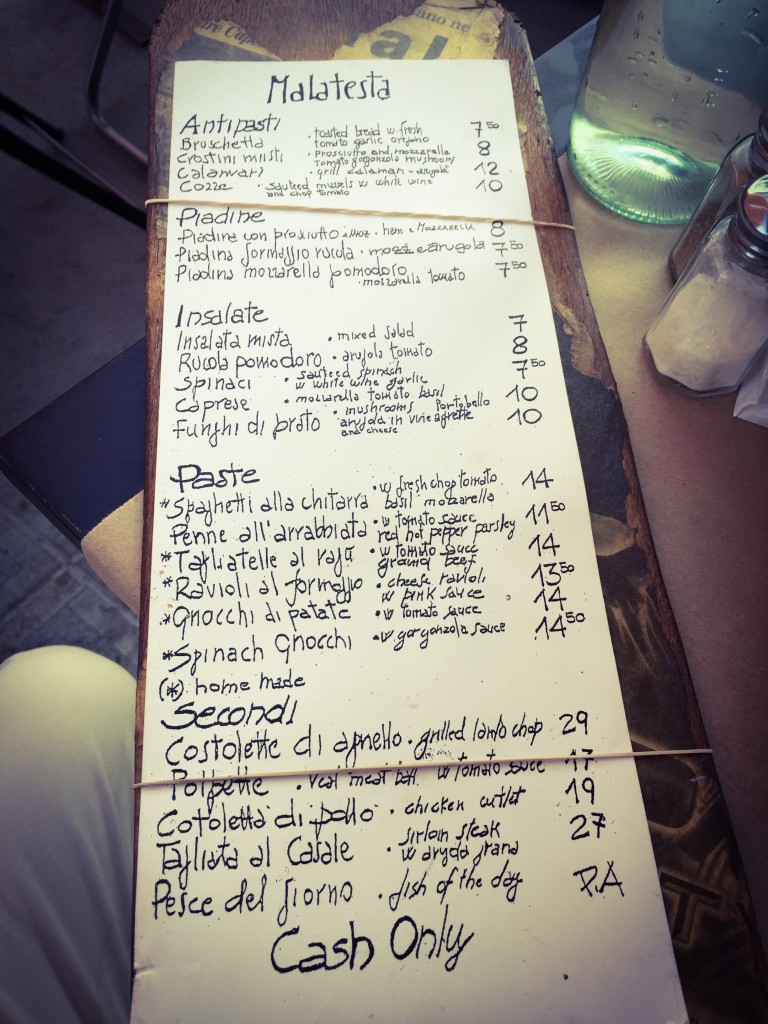 al
Malatesta
Antipasti
Bruschetta . toasted bread w fresh tomato garlic oregano 7 50
Crostini miisti . Prosciutto and mozzarella Tomato gorgonzola mushrooms 8
Calamari . grill calamari - arugola 12
Cozze . sauteed mussels w white wine and chop tomato 10
Piadine
Piadina con prosciutto e moz. ham e Mozzarella 8
Piadina formaggio rucola . mozz e arugola 7 50
Piadina mozzarella pomodoro . mozzarella tomato 7 50
Insalate
Insalata mista . mixed salad 7
Rucola pomodoro . arugola tomato 8
Spinaci . sauteed spinach w white wine garlic 7 50
Caprese . mozzarella tomato basil 10
Funghi di prato . mushrooms Portobello arugola in vinegrette and cheese 10
Paste
*Spaghetti alla chitarra . w fresh chop tomato basil mozzarella 14
Penne all'arrabbiata . w tomato sauce red hot pepper parsley 11 50
*Tagliatelle al ragù . w tomato sauce ground beef 14
*Ravioli al formaggio . cheese ravioli w pink sauce 13 50
*Gnocchi di patate . w tomato sauce 14
*Spinach Gnocchi . w gorgonzola sauce 14 50
(*) home made
Secondi
Costolette di agnello . grilled lamb chop 29
Polpette . veal meat ball w tomato sauce 17
Cotoletta di pollo . chicken cutlet 19
Tagliata al Casale . sirloin steak w arugola grana 27
Pesce del giorno . fish of the day P.A
Cash Only